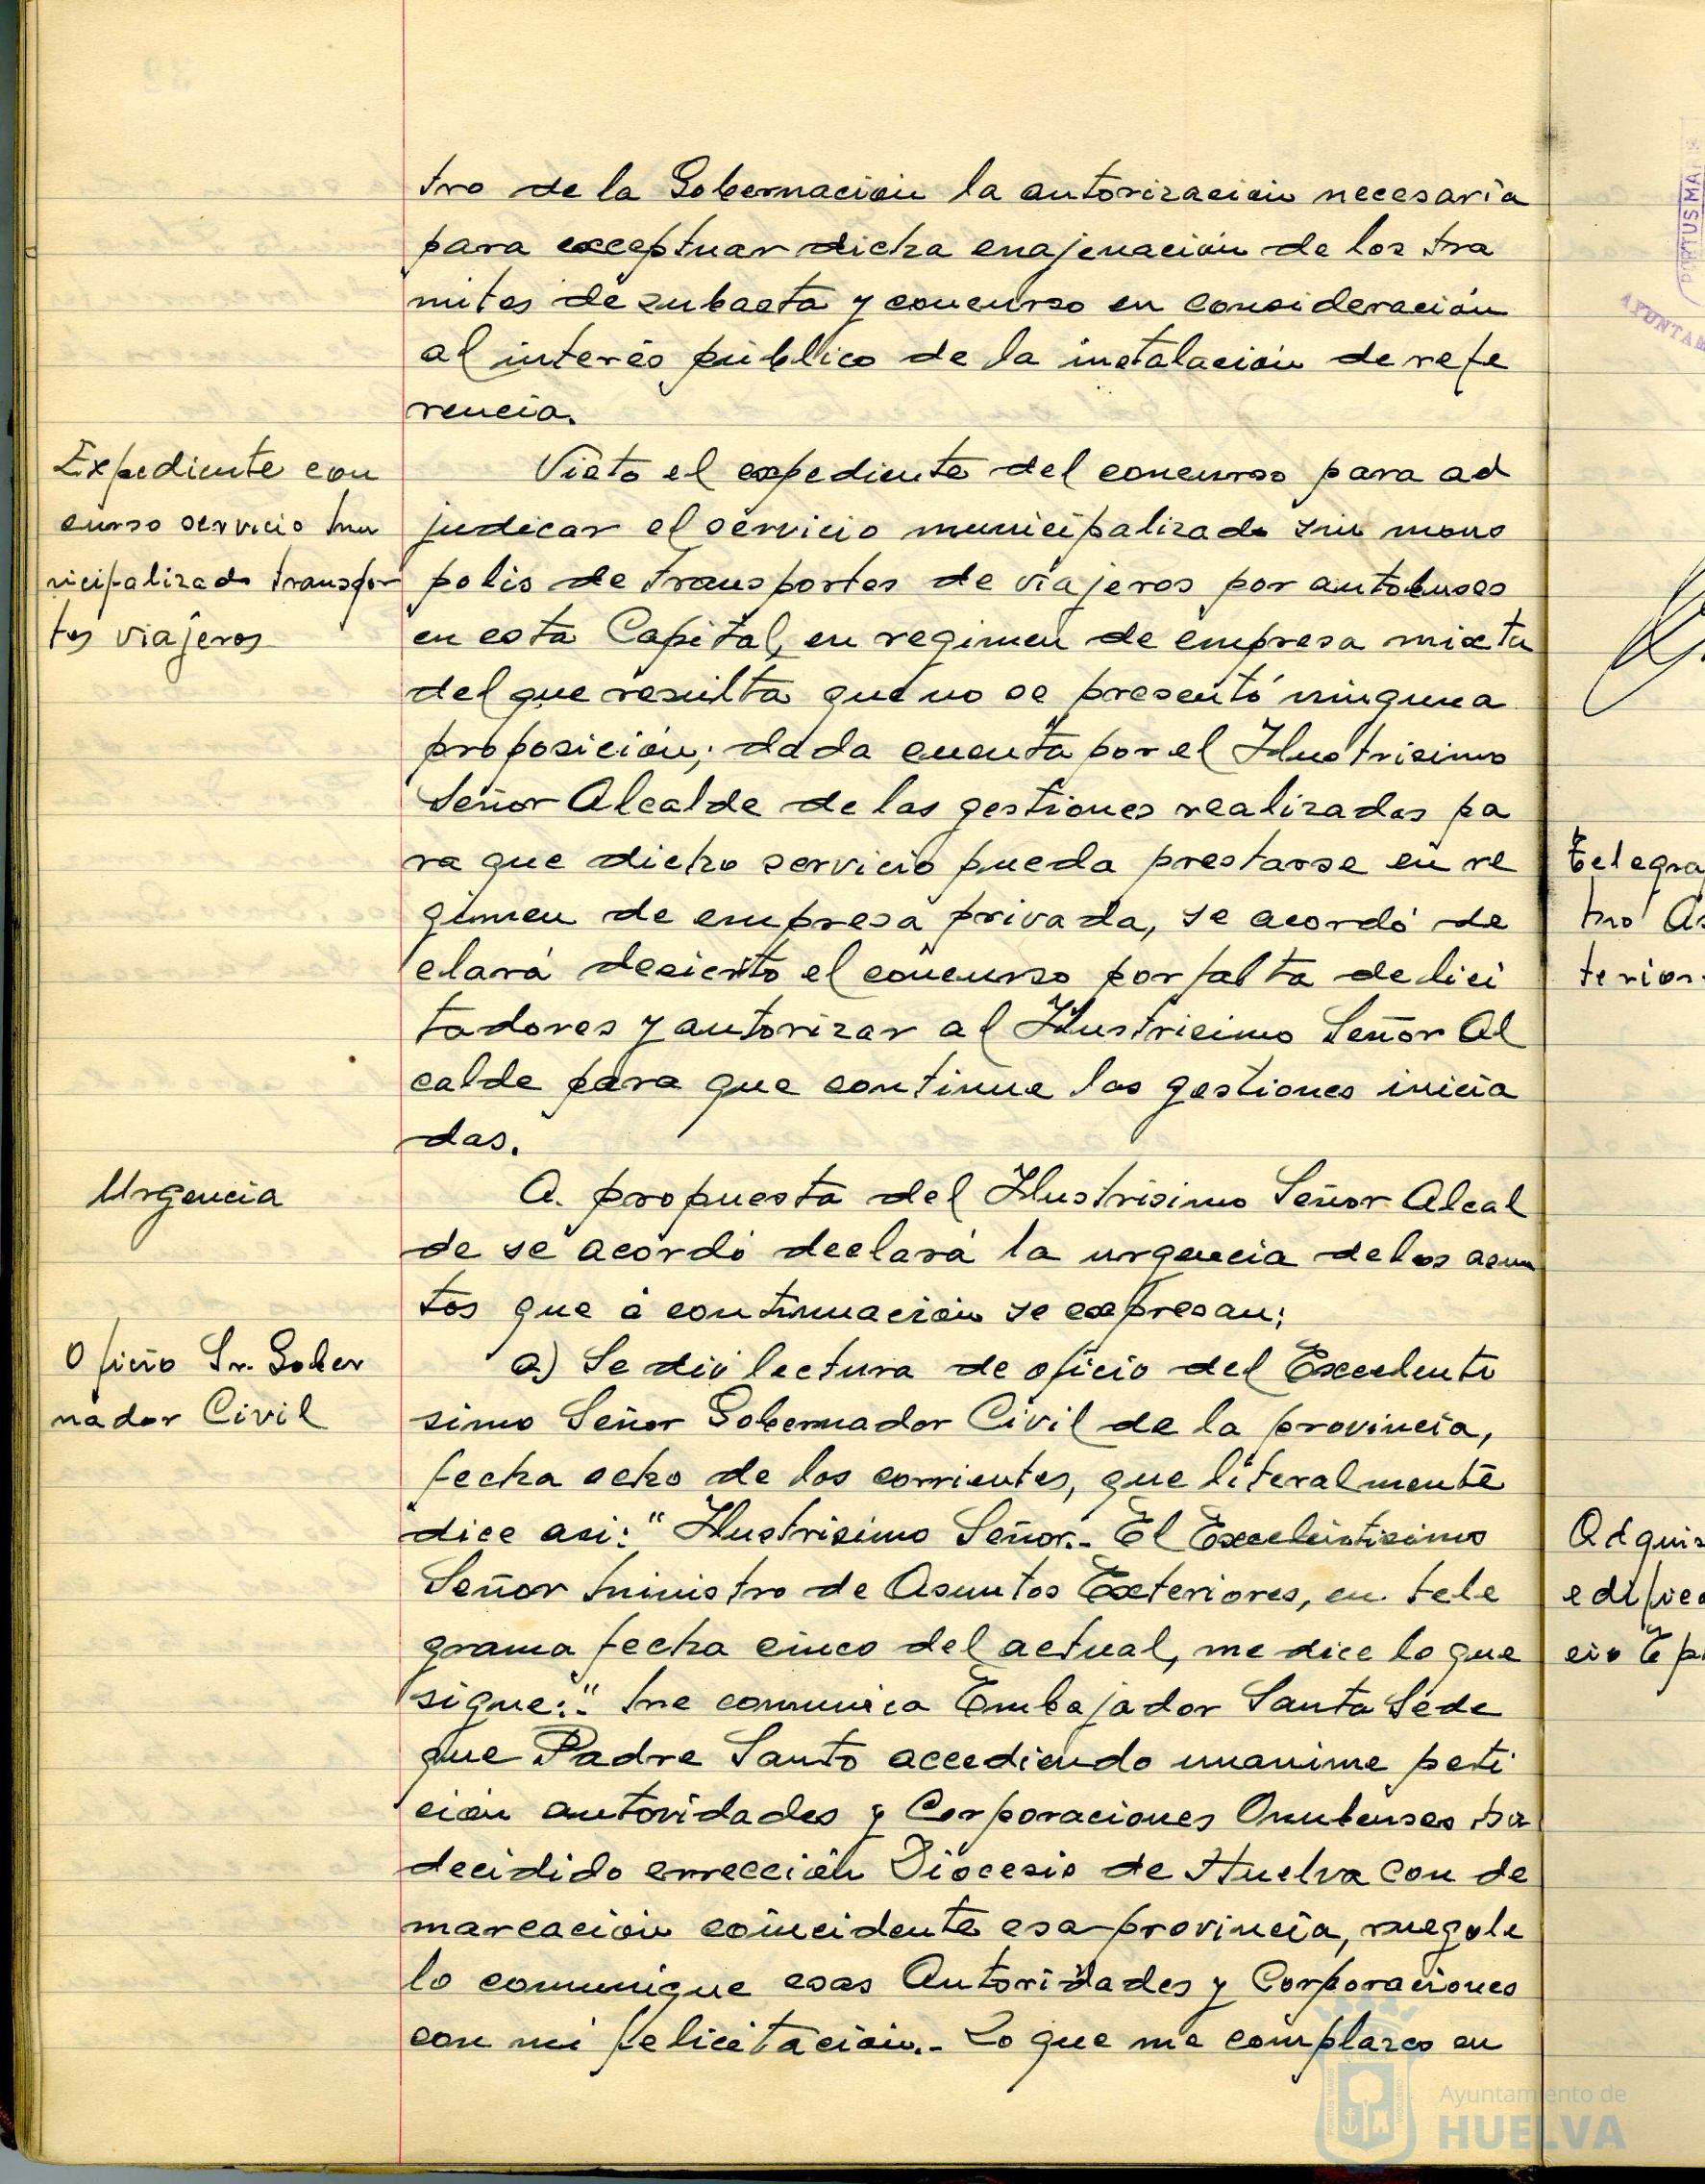 tro de la Gobernación la autorización necesaria
para exceptuar dicha enajenación de los tra
mites de subasta y concurso en consideración
al interés público de la instalación de refe
rencia.
Expediente con
curso servicio mu
nicipalizado transpor
tes viajeros
Visto el expediente del concurso para ad
judicar el servicio municipalizado sin mono
polio de transportes de viajeros por autobuses
en esta Capital, en regimen de empresa mixta
del que resulta que no se presentó ninguna
proposición; dada cuenta por el Ilustrisimo
Señor Alcalde de las gestiones realizadas pa
ra que dicho servicio pueda prestarse en re
gimen de empresa privada, se acordó de
clará desierto el concurso por falta de lici
tadores y autorizar al Ilustrisimo Señor Al
calde para que continue las gestiones inicia
das.
Urgencia
A propuesta del Ilustrisimo Señor Alcal
de se acordó declará la urgencia de los asun
tos que á continuación se expresan:
Oficio Sr. Gober
nador Civil
a) Se dió lectura de oficio del Excelenti
simo Señor Gobernador Civil de la provincia,
fecha ocho de los corrientes, que literalmente
dice asi: "Ilustrisimo Señor.- El Excelentisimo
Señor Ministro de Asuntos Exteriores, en tele
grama fecha cinco del actual, me dice lo que
sigue: " Me comunica Embajador Santa Sede
que Padre Santo accediendo unanime peti
ción autoridades y Corporaciones Onubenses ha
decidido errección Diocesis de Huelva con de
marcación coincidente esa provincia, ruegole
lo comunique esas Autoridades y Corporaciones
con mi felicitación.- Lo que me complazco en
PORTUS MARIS
AYUNTAM
Telegra
mo As
terior
Adquis
edific
cio Ep
Ayuntamiento de
HUELVA